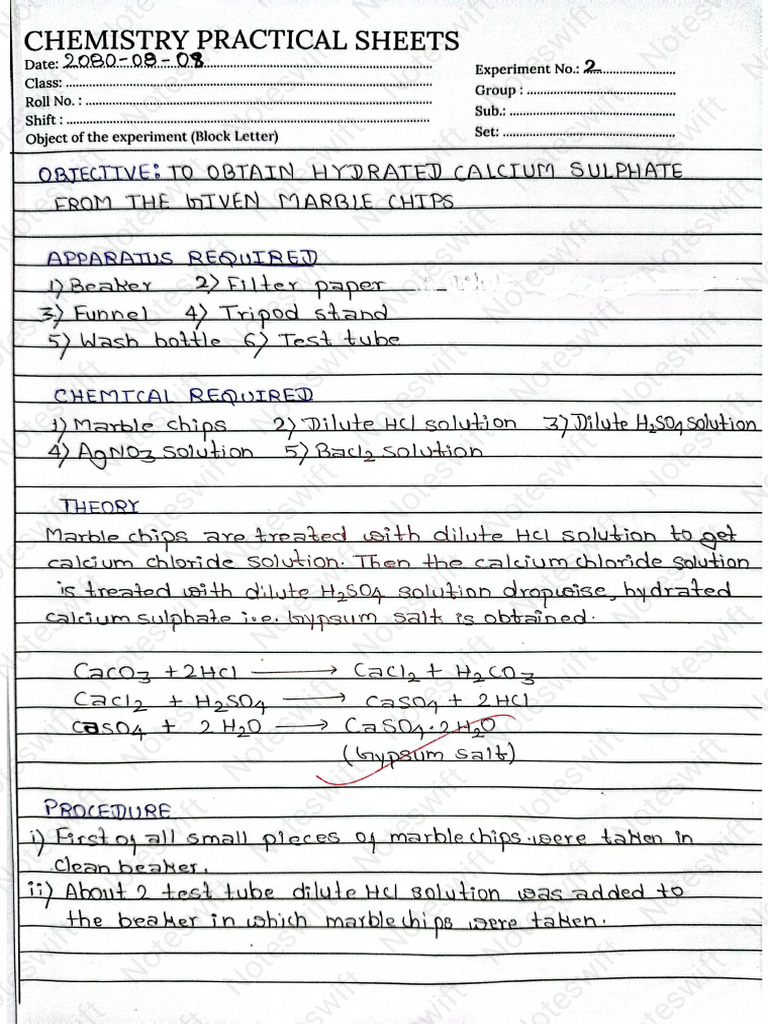 CHEMISTRY PRACTICAL SHEETS
Date: 2080-08-08
Experiment No.: 2
Class:
Group :
Roll No. :
Sub.:
Shift :
Set:
Object of the experiment (Block Letter)
OBJECTIVE: TO OBTAIN HYDRATED CALCIUM SULPHATE
FROM THE GIVEN MARBLE CHIPS
APPARATUS REQUIRED
1) Beaker 2) Filter paper
3) Funnel 4) Tripod stand
5) Wash bottle 6) Test tube
CHEMICAL REQUIRED
1) Marble chips 2) Dilute HCl solution 3) Dilute H₂SO₄ solution
4) AgNO₃ solution 5) BaCl₂ solution
THEORY
Marble chips are treated with dilute HCl solution to get
calcium chloride solution. Then the calcium chloride solution
is treated with dilute H₂SO₄ solution dropwise, hydrated
calcium sulphate i.e. Gypsum salt is obtained.
CaCO₃ + 2HCl ⟶ CaCl₂ + H₂CO₃
CaCl₂ + H₂SO₄ ⟶ CaSO₄ + 2HCl
CaSO₄ + 2H₂O ⟶ CaSO₄·2H₂O
(Gypsum salt)
PROCEDURE
i) First of all small pieces of marble chips were taken in
clean beaker.
ii) About 2 test tube dilute HCl solution was added to
the beaker in which marble chips were taken.
Noteswift